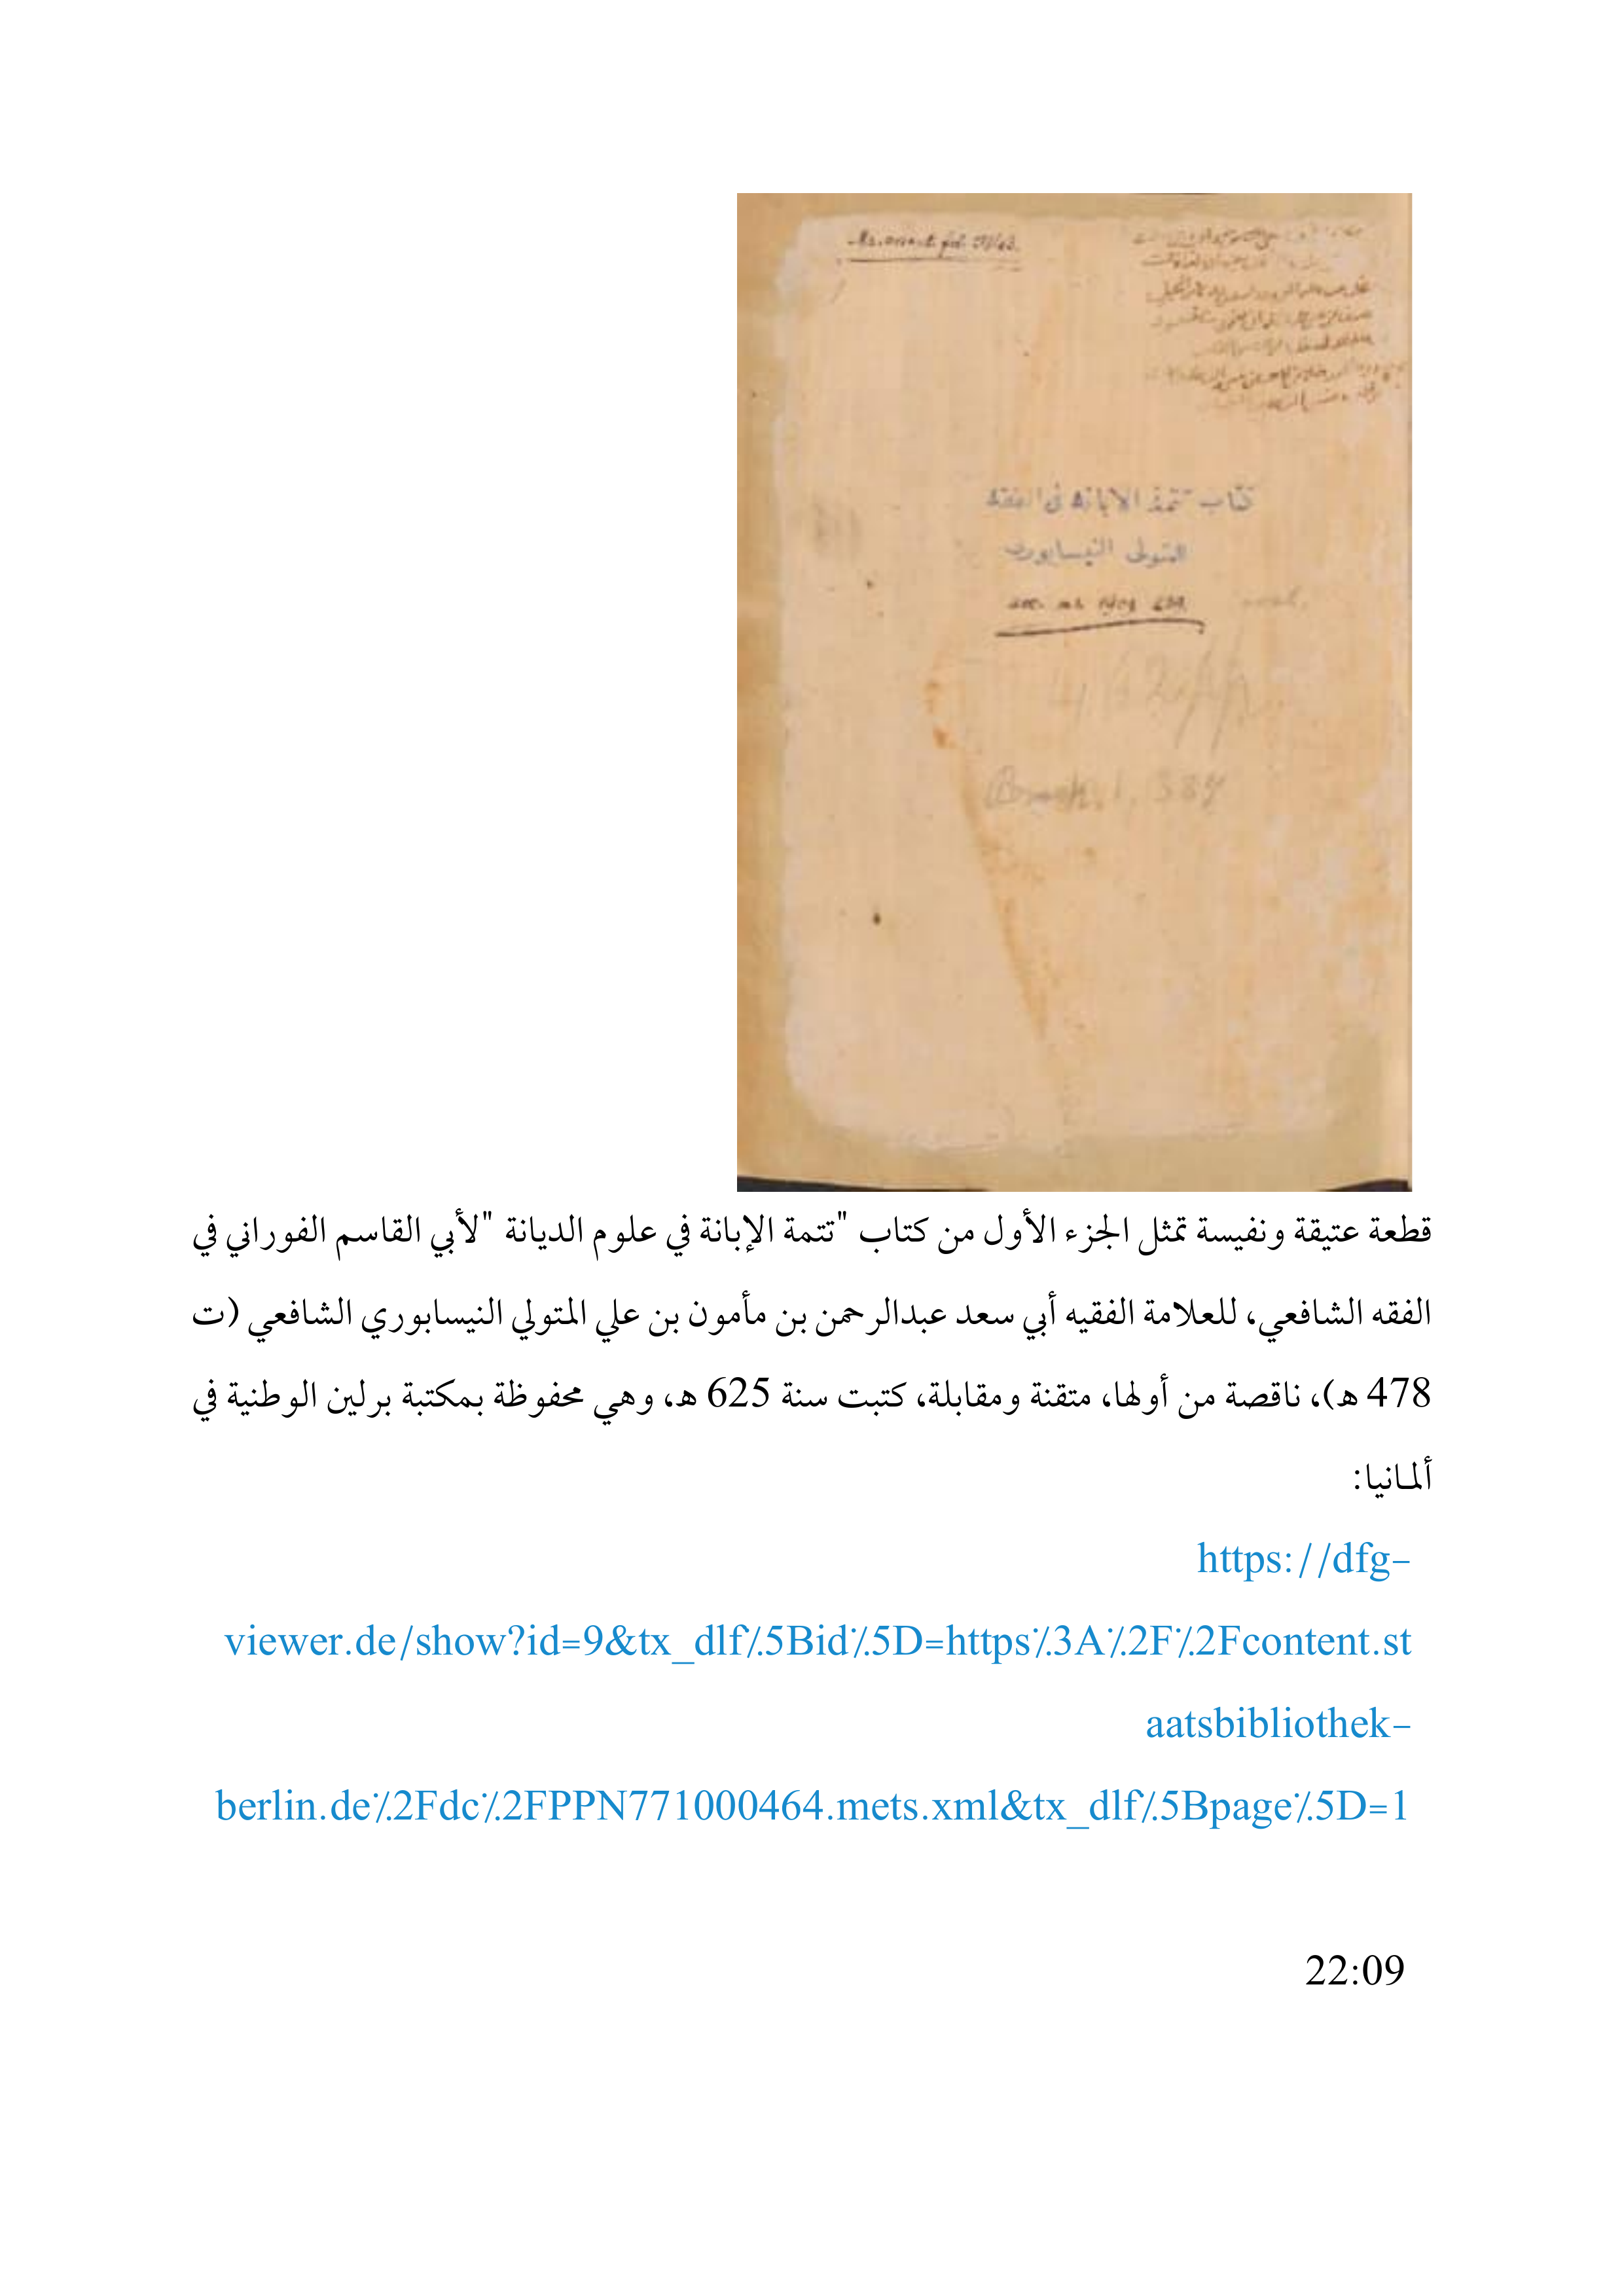 كتاب تتمة الابانة في الفقه
المتولى النيسابورى
قطعة عتيقة ونفيسة تمثل الجزء الأول من كتاب "تتمة الإبانة في علوم الديانة "لأبي القاسم الفوراني في
الفقه الشافعي، للعلامة الفقيه أبي سعد عبدالرحمن بن مأمون بن علي المتولي النيسابوري الشافعي (ت
478 ه)، ناقصة من أولها، متقنة ومقابلة، كتبت سنة 625 ه، وهي محفوظة بمكتبة برلين الوطنية في
ألمانيا:
https://dfg-
viewer.de/show?id=9&tx_dlf٪5Bid٪5D=https٪3A٪2F٪2Fcontent.st
aatsbibliothek-
berlin.de٪2Fdc٪2FPPN771000464.mets.xml&tx_dlf٪5Bpage٪5D=1
22:09